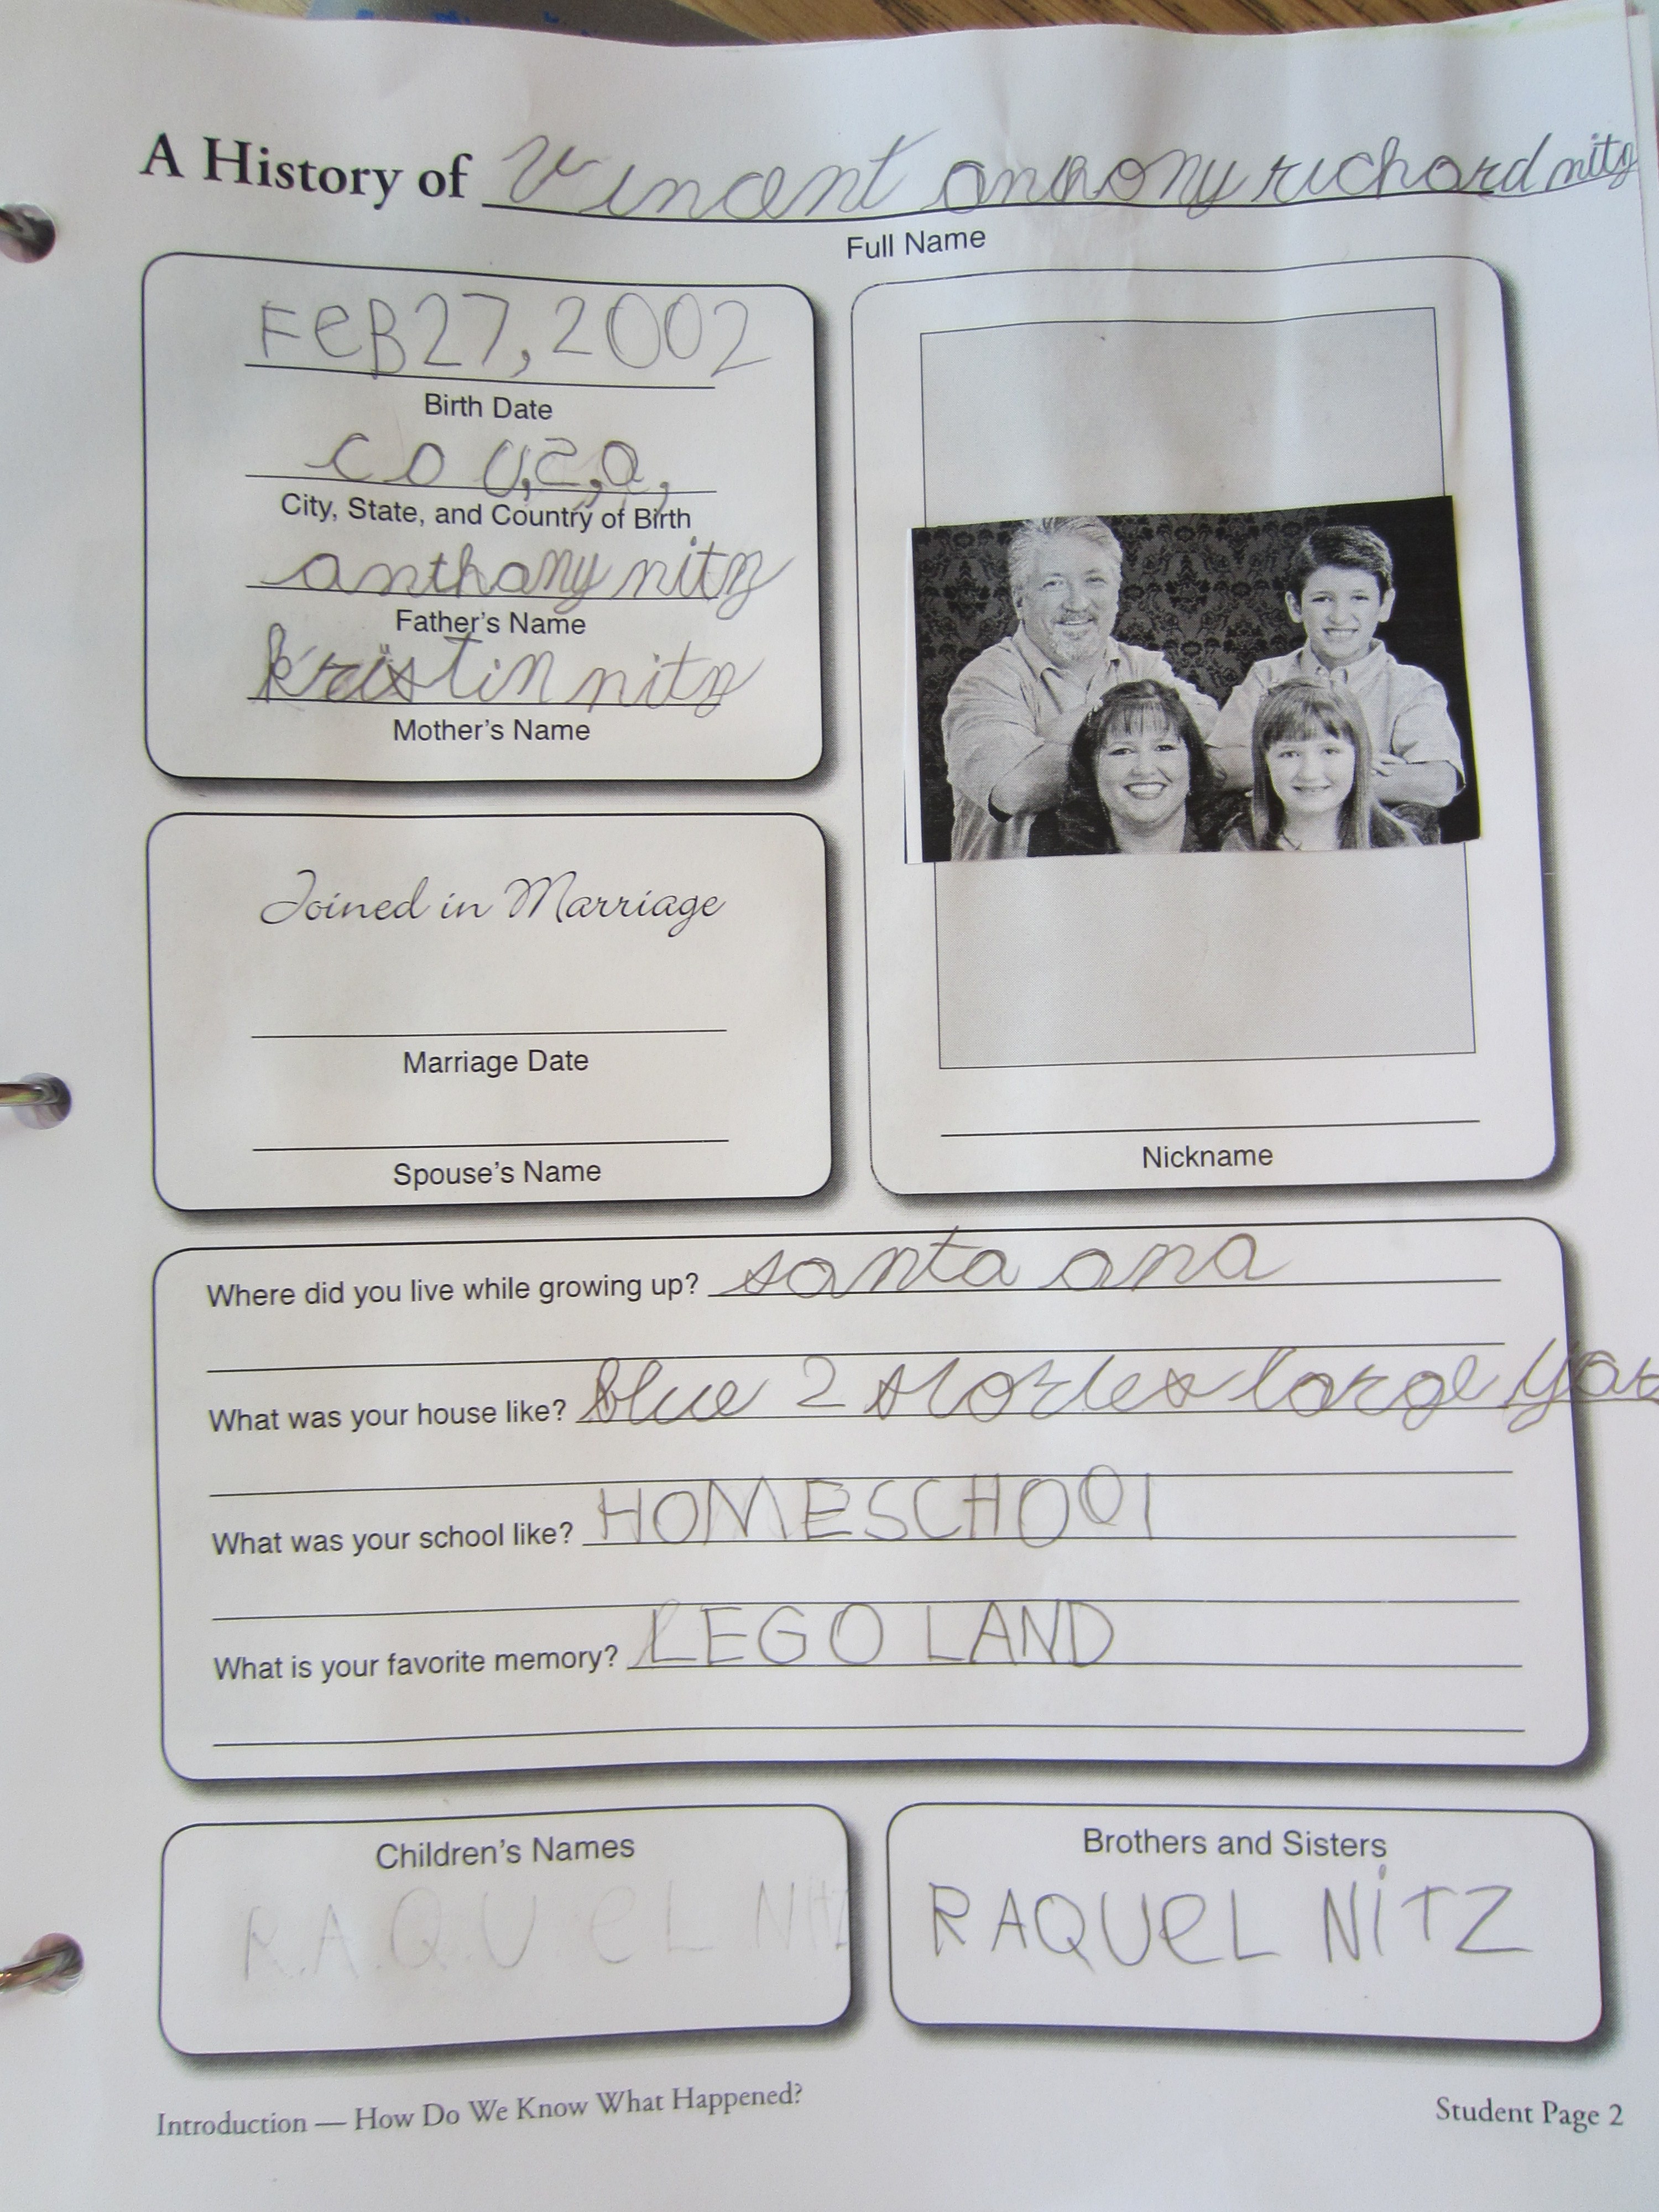 A History of Vincent anthony richard nitz
Full Name
FeB 27, 2002
Birth Date
co u,s,a,
City, State, and Country of Birth
anthony nitz
Father's Name
kristin nitz
Mother's Name
Joined in Marriage
Marriage Date
Spouse's Name
Nickname
Where did you live while growing up? santa ana
What was your house like? blue 2 stories large yar
What was your school like? HOMESCHOOl
What is your favorite memory? LEGO LAND
Children's Names
RAQUeL NitZ
Brothers and Sisters
RAQUeL NiTZ
Introduction — How Do We Know What Happened?
Student Page 2